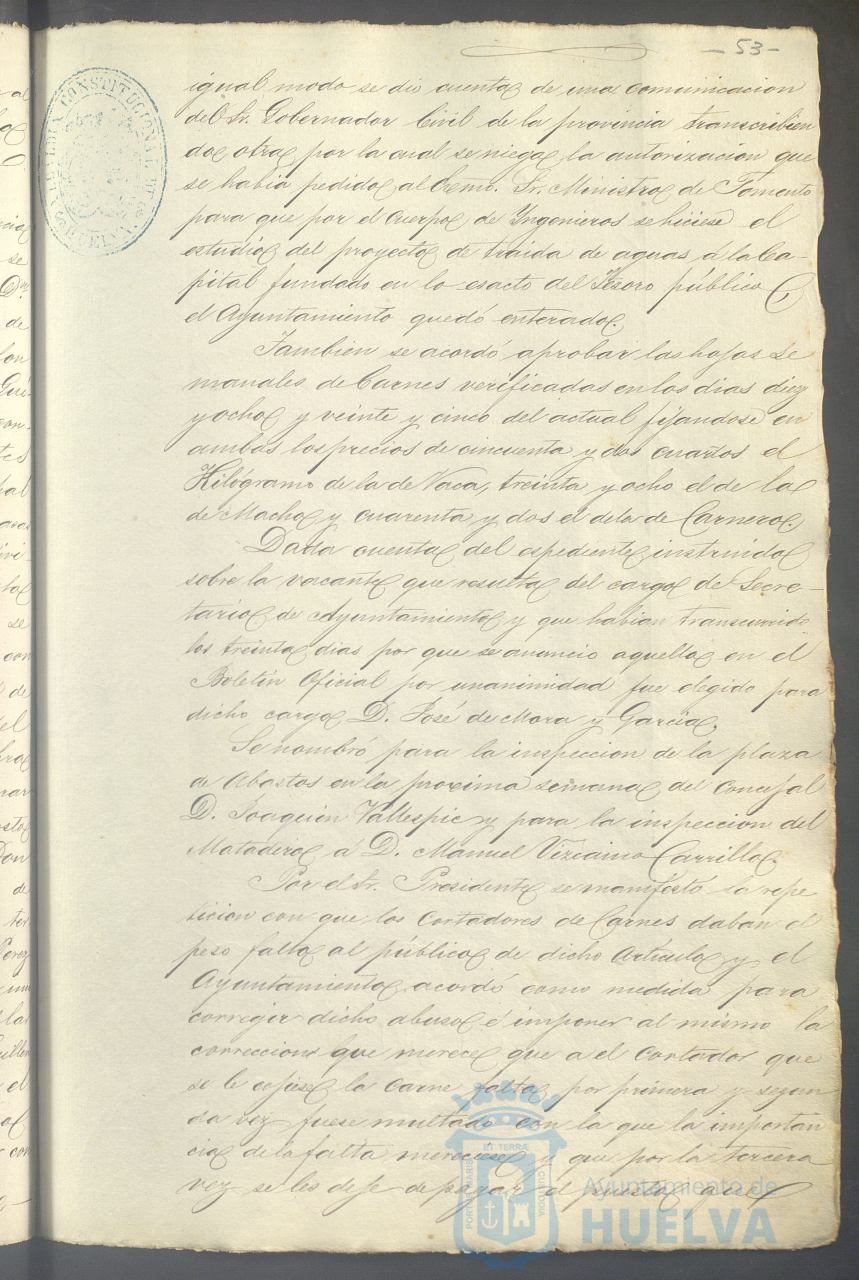 - 53 -
igual modo se dió cuenta de una comunicacion
del Sr. Gobernador Civil de la provincia transcribien
do otra por la cual se niega la autorizacion que
se habia pedido al Excmo. Sr. Ministro de Fomento
para que por el Cuerpo de Ingenieros se hiciese el
estudio del proyecto de traida de aguas á la Ca-
pital fundado en lo esacto del Tesoro público y
el Ayuntamiento quedó enterado.
Tambien se acordó aprobar las hojas se
manales de Carnes verificadas en los dias diez
y ocho y veinte y cinco del actual fijandose en
ambas los precios de cincuenta y dos cuartos el
Kilógramo de la de Vaca, treinta y ocho el de la
de Macho y cuarenta y dos el de la de Carnero.
Dada cuenta del espediente instruido
sobre la vacante que resulta del cargo de Secre-
tario de Ayuntamiento y que habian transcurrido
los treinta dias por que se anuncio aquella en el
Boletin Oficial por unanimidad fue elegido para
dicho cargo D. José de Mora y Garcia.
Se nombró para la inspeccion de la plaza
de Abastos en la proxima semana del Concejal
D. Joaquin Vallespin y para la inspeccion del
Matadero á D. Manuel Vizcaino Carrillo.
Por el Sr. Presidente se manifestó la repe
ticion con que los Cortadores de Carnes daban el
peso falto al público de dicho Articulo y el
Ayuntamiento acordó como medida para
corregir dicho abuso é imponer al mismo la
correccion que merece que a el Cortador que
se le cojiese la carne falta por primera y segun
da vez fuese multado con la que la importan
cia de la falta mereciese y que por la tercera
vez se les deje de pagar el puesto que
ALCALDIA CONSTITUCIONAL DE HUELVA
PORTUS MARIS ET TERRÆ CUSTODIA
Ayuntamiento de
HUELVA